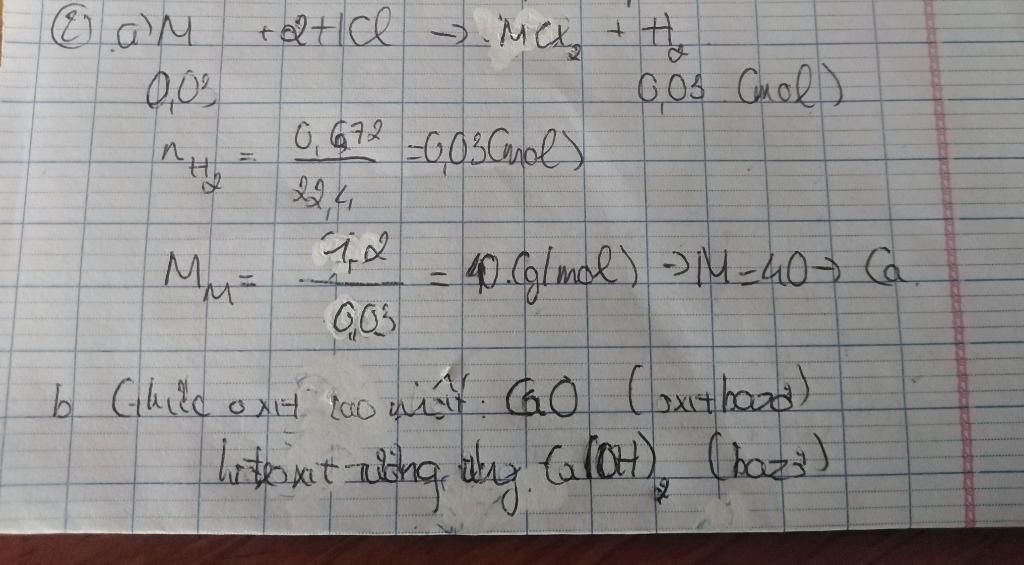 ② a) M + 2HCl → MCl₂ + H₂
0,03 0,03 (mol)
n H₂ = 0,672 / 22,4 = 0,03 (mol)
M M = 1,2 / 0,03 = 40 (g/mol) → M = 40 → Ca
b oxit cao nhất: CaO (oxit bazơ)
tương ứng Ca(OH)₂ (bazơ)